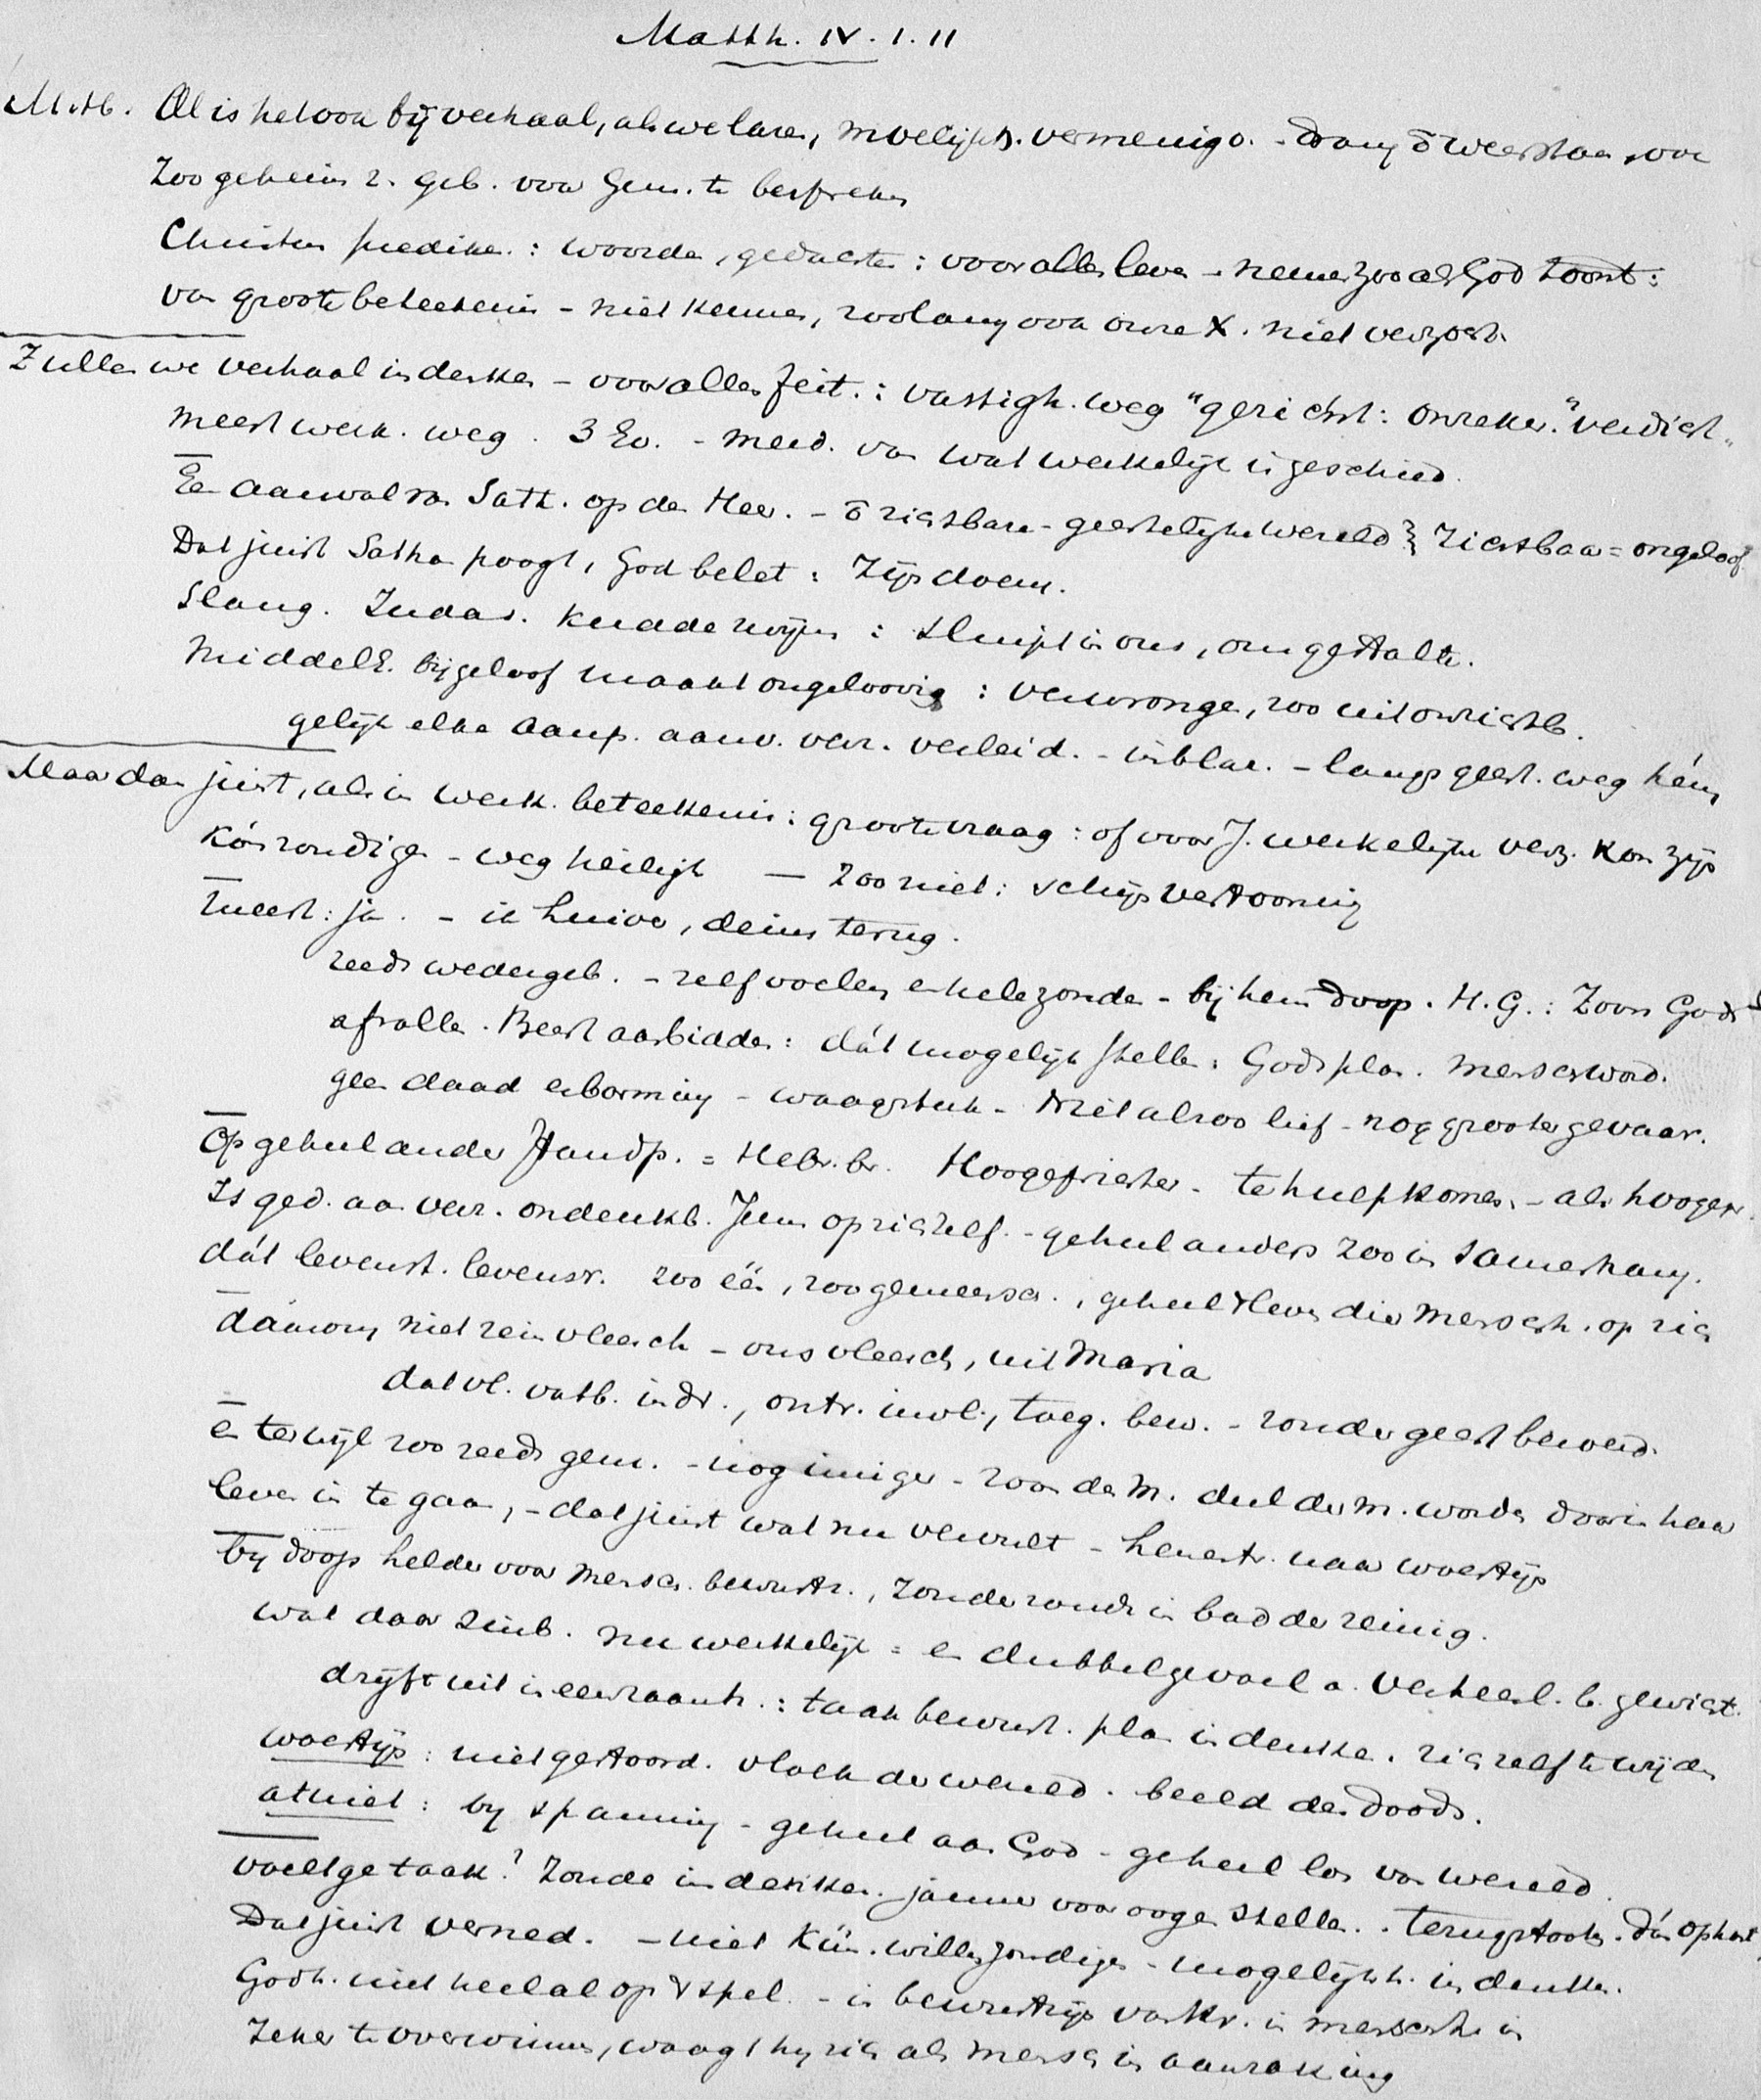 Matth. IV. 1. 11
M.H. Al is het ook bij verhaal, als we lazen, moeilijkh. vermenigv. - drang õ weerstaan, ook
Zoo geheim z. geb. voor Gem. te bespreken
Christus prediken : woorden, gedachten : voor alles leven - nemen zooals God toont :
van groote beteekenis - niet kennen, zoolang ook onze X. niet verzocht.
Zullen we verhaal indenken - voor alles feit. : vastigh. weg "gezicht : onzeker." verdicht."
meest werk. weg. 3 Ev. - meed. van wat werkelijk is geschied.
Een aanval van Sath. op den Heer. - õ zichtbare - geestelijke wereld } zichtbaar = ongeloof
Dat juist Sathan poogt, God belet : zijn doem.
Slang. Judas. kudde zwijnen : sluipt in ons, om gestalte.
Middel E. bijgeloof maakt ongeloovig : verwrongen, zoo uit onzichtb.
gelijk elke aanp. aanv. verz. verleid. - inblaz. - langs geest. weg hém
Maar dan juist, als in werk. beteekenis : groote vraag : of voor J. werkelijke verz. kon zijn
kón zondigen - weg heiligh — zoo niet : schijnvertooning
meest : ja. - ik huiver, deins terug.
reeds wedergeb. - zelf voelen enkele zonden - bij hem doop. H.G. : Zoon Gods
afvallen. Beest aanbidden : dát mogelijk stellen : Gods plan. menschword.
geen daad erbarming - waagstuk - niet alzoo lief - nog grooter gevaar.
Op geheel ander standp. = Hebr. br. Hoogepriester - te hulp komen - als hooger.
Is ged. aan verz. ondenkb. Jezus op zichzelf. - geheel anders zoo in samenhang.
dát levenst. levensv. zoo één, zoo gemeensch., geheel leven dier menschh. op zich
dáárom niet rein vleesch - ons vleesch, uit Maria
dat vl. vatb. indr., ontv. invl., toeg. bew. - zonder geest bewoed.
en terwijl zoo reeds gem. - nog inniger - zoon des M. deel der M. worden door in haar
leven in te gaan, - dat juist wat nu vervult - henestr. naar woestijn
bij doop helder voor mensch. bewustz., zonde zonds in bad der reinig.
wat daar zinb. nu werkelijk = en dubbel gevoel a. verheerl. b. gewicht.
drijft uit in eenzaamh. : taak bewust. plan indenken. zichzelf te wijden
woestijn : niet gestoord. vloek der wereld. beeld des doods.
at niet : bij spanning - geheel aan God - geheel los van wereld.
voelt ge taak? Zonde indenken. jammer voor oogen stellen. . terugstoot. dán op hart
Dat juist verned. - niet kún. willen zondigen - mogelijkh. indenken.
Godh. niet heelal op 't spel. - in bewustzijn van kr. in menschh. in
zeker te overwinnen, waagt hij zich als mensch in aanraking